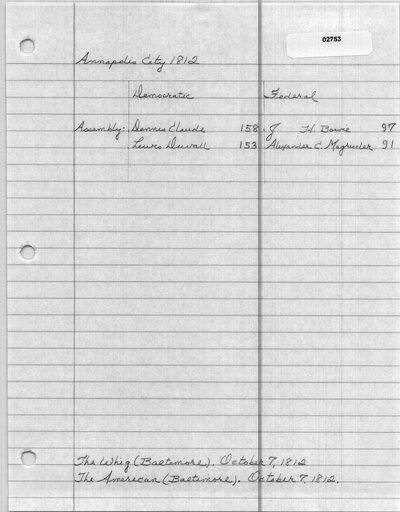 02753
Annapolis City 1812
Democratic Federal
Assembly: Dennis Claude 158 J H. Bowie 97
Lewis Duvall 153 Alexander C. Magruder 91
The Whig (Baltimore). October 7, 1812
The American (Baltimore). October 7, 1812.